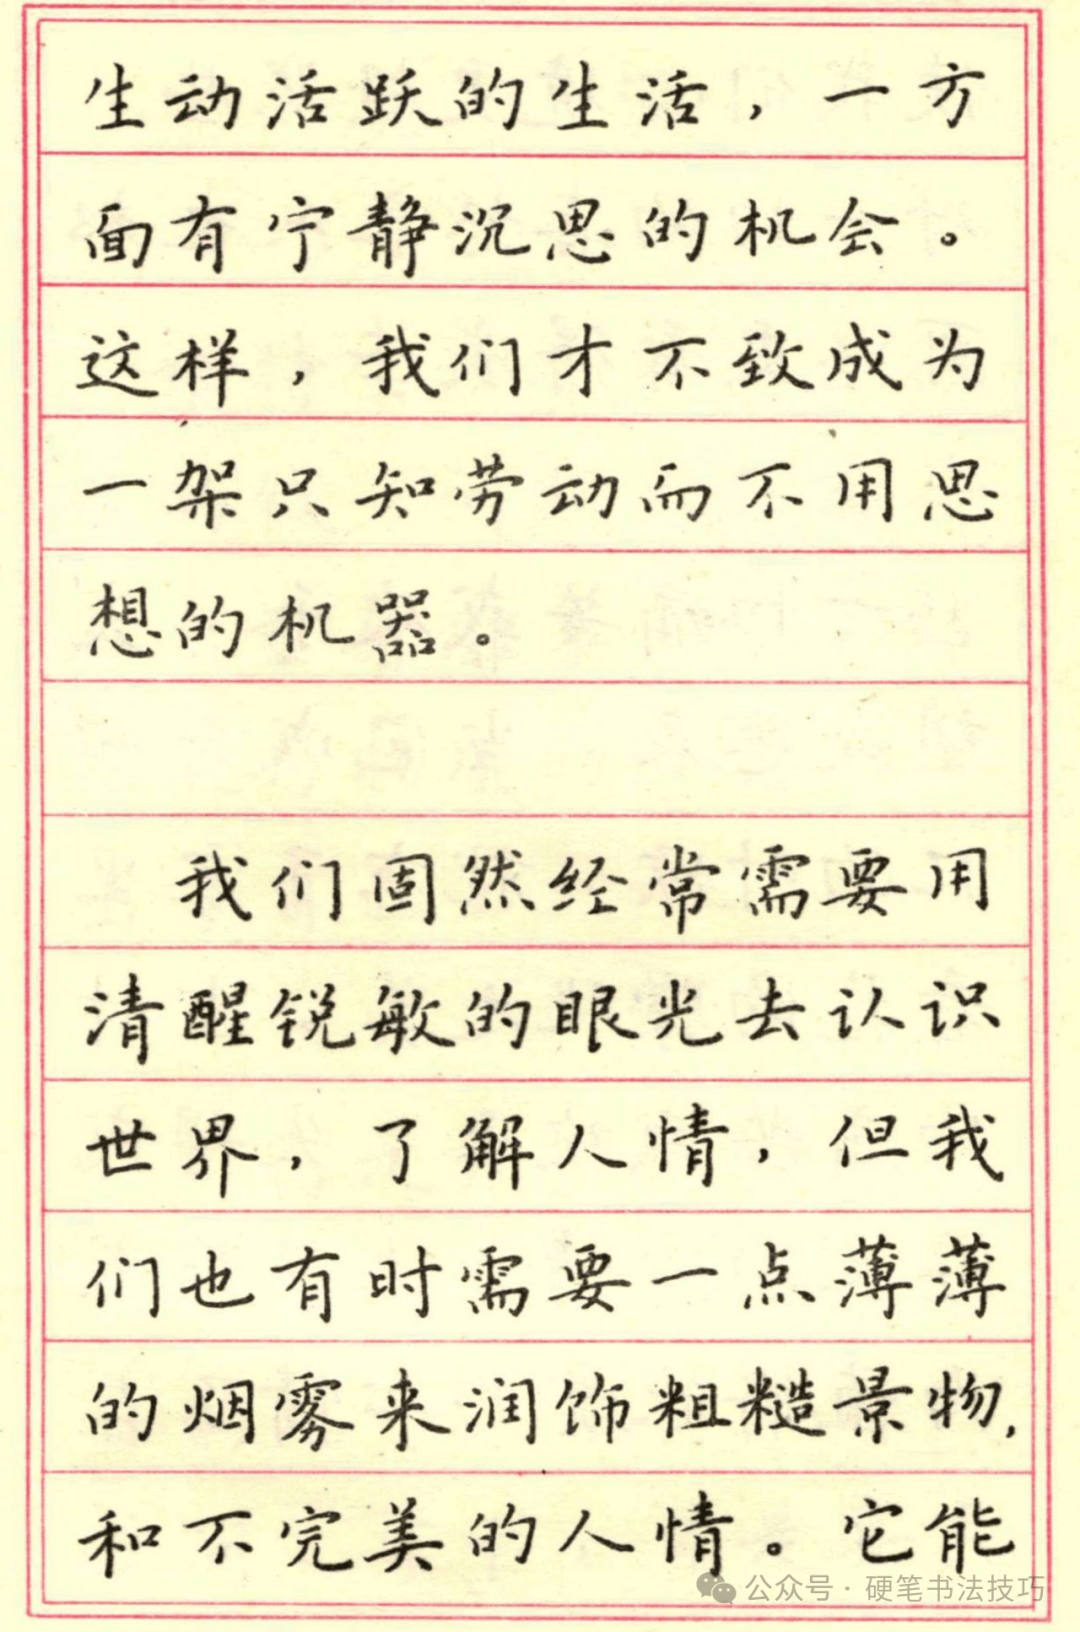 生动活跃的生活，一方
面有宁静沉思的机会。
这样，我们才不致成为
一架只知劳动而不用思
想的机器。
我们固然经常需要用
清醒锐敏的眼光去认识
世界，了解人情，但我
们也有时需要一点薄薄
的烟雾来润饰粗糙景物，
和不完美的人情。它能
公众号·硬笔书法技巧